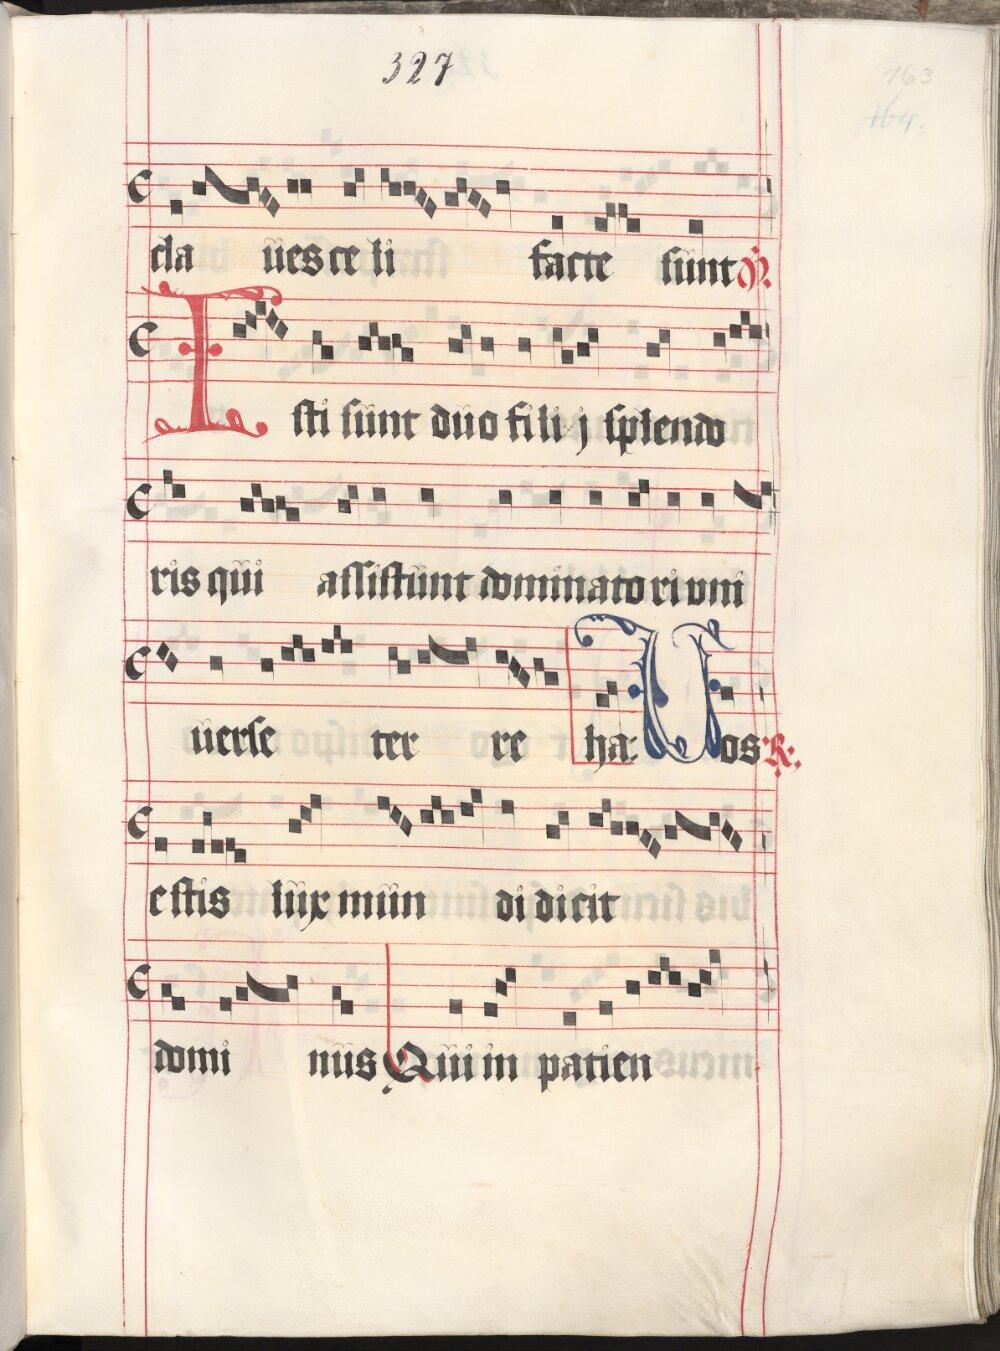 327
163
164.
cla ues ce li facte sunt ℣.
Isti sunt duo filij splendo
ris qui assistunt dominato ri vni
uerse ter re ha: Vos ℟:
estis lux mun di dicit
domi nus Qui in patien